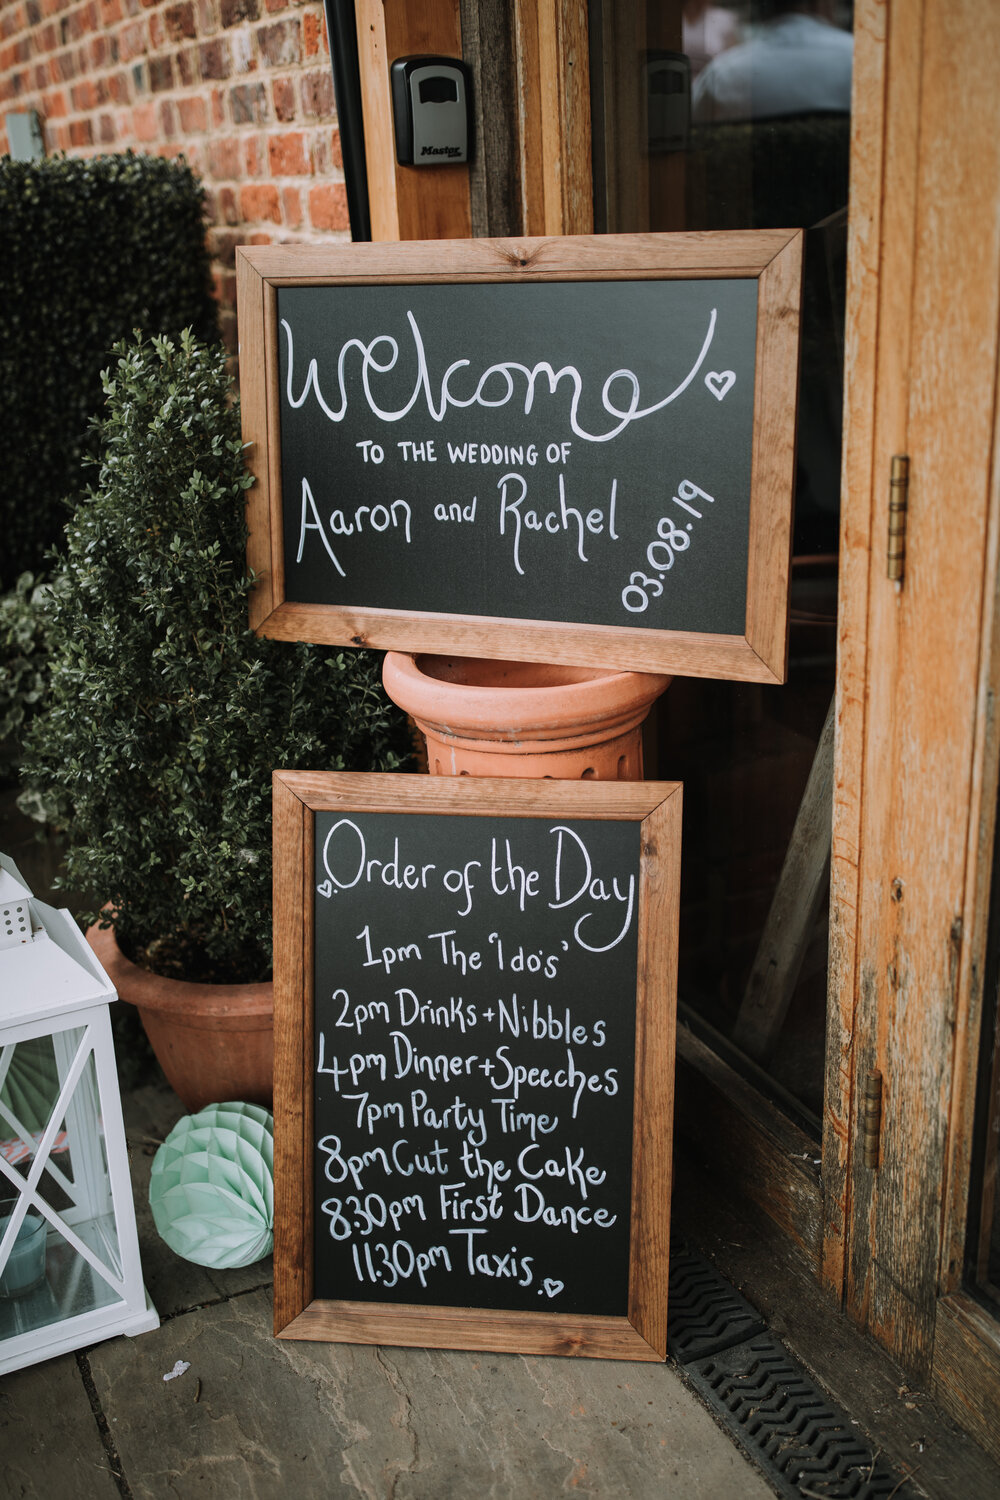 Master
Welcome
TO THE WEDDING OF
Aaron and Rachel
03.08.19
Order of the Day
1pm The 'I do's'
2pm Drinks + Nibbles
4pm Dinner + Speeches
7pm Party Time
8pm Cut the Cake
8.30pm First Dance
11.30pm Taxis.